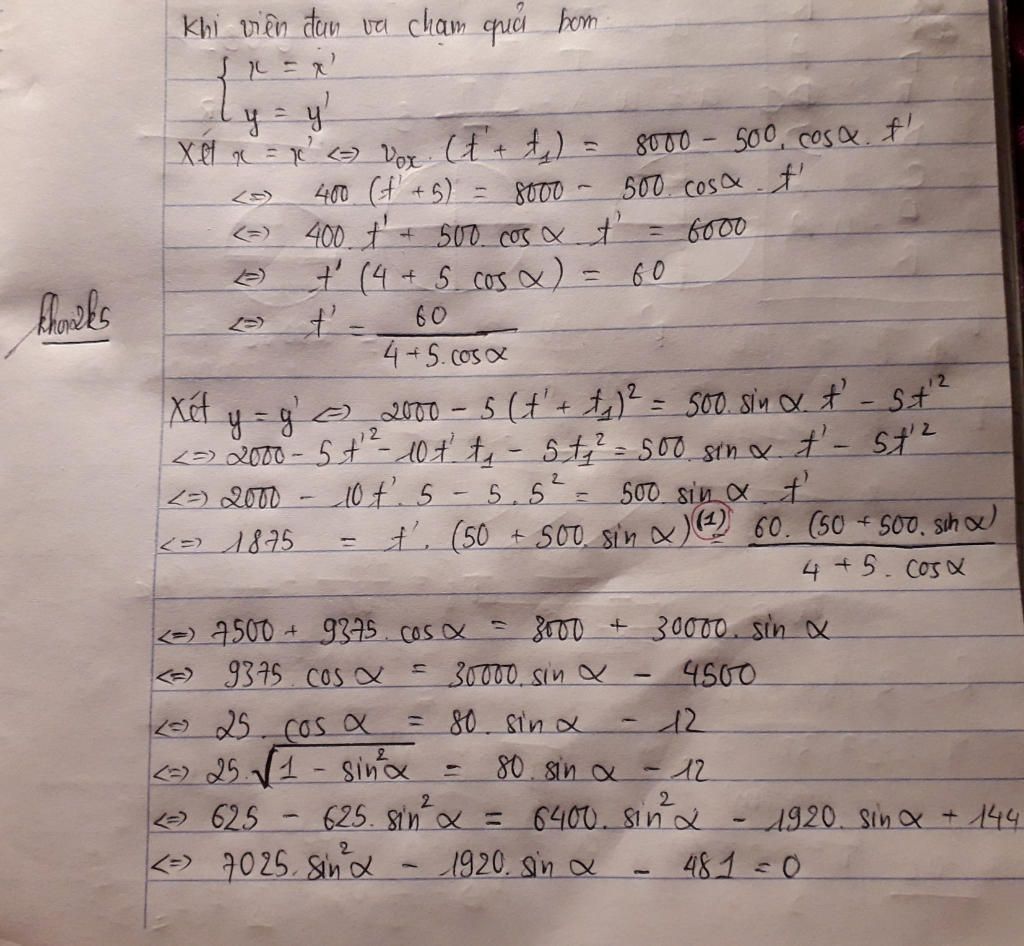 Khi viên đạn va chạm quả bom
{ x = x'
y = y'
Xét x = x' <=> v₀ₓ. (t' + t₁) = 8000 - 500. cosα. t'
<=> 400 (t' + 5) = 8000 - 500. cosα. t'
<=> 400. t' + 500. cos α. t' = 6000
<=> t' (4 + 5. cos α) = 60
<=> t' = 60 / (4 + 5. cosα)
Xét y = y' <=> 2000 - 5 (t' + t₁)² = 500. sin α. t' - 5t'²
<=> 2000 - 5t'² - 10t'. t₁ - 5t₁² = 500. sin α. t' - 5t'²
<=> 2000 - 10t'. 5 - 5. 5² = 500. sin α. t'
<=> 1875 = t'. (50 + 500. sin α) (1) = 60. (50 + 500. sin α) / (4 + 5. cosα)
<=> 7500 + 9375. cos α = 3000 + 30000. sin α
<=> 9375. cos α = 30000. sin α - 4500
<=> 25. cos α = 80. sin α - 12
<=> 25. √(1 - sin²α) = 80. sin α - 12
<=> 625 - 625. sin²α = 6400. sin²α - 1920. sin α + 144
<=> 7025. sin²α - 1920. sin α - 481 = 0